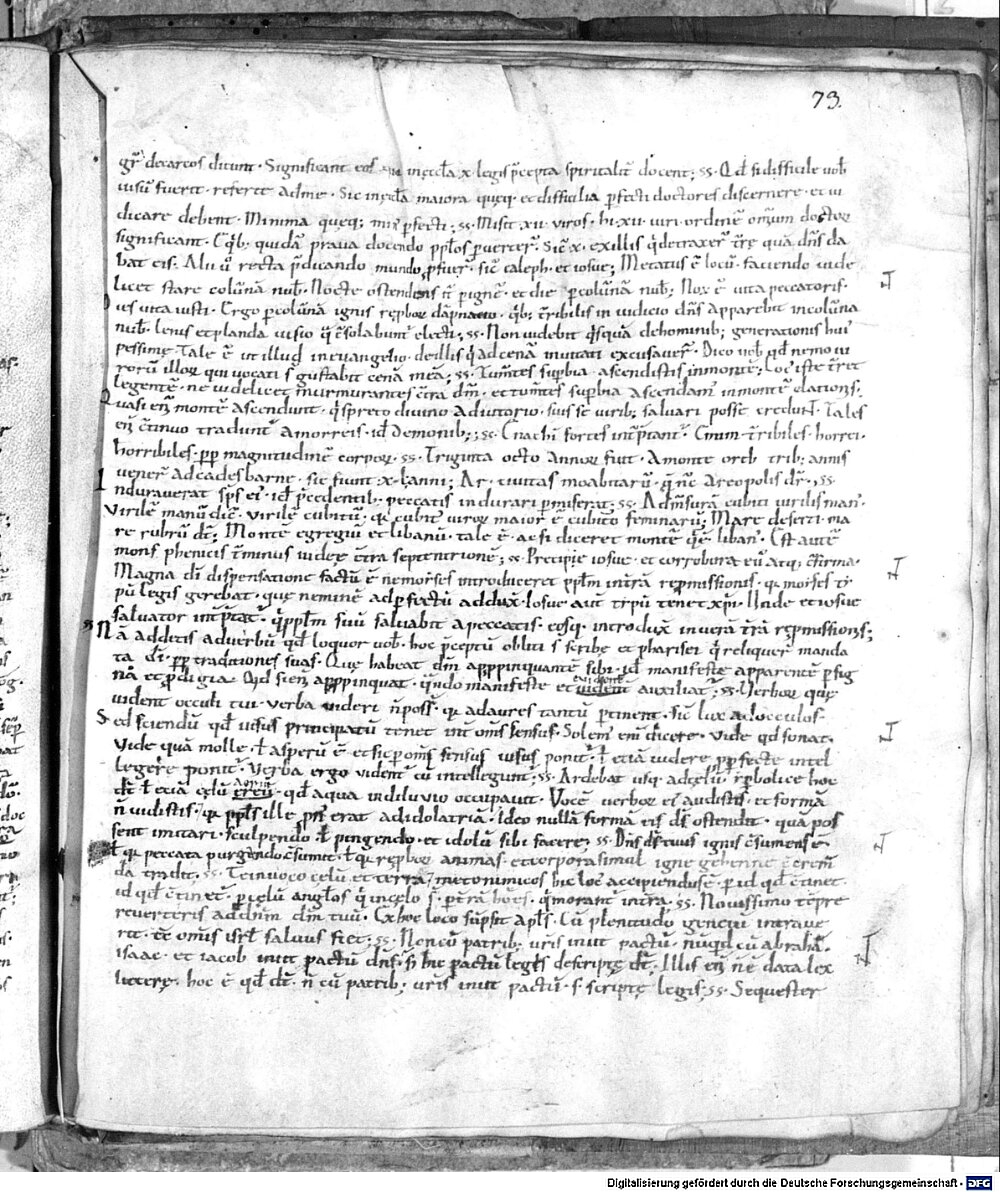 73.
gr̄ decarcos dicunt · Significant eos qui in ęccl̄a x̄ legis p̄cepta spiritalit̄ docent; ss · Qd̄ si difficile uob̄
uisū fuerit · referte adme · Sic in ęccl̄a maiora queq; et difficilia p̄fecti doctores discernere · et iu
dicare debent · Minima queq; min' p̄fecti; ss · Misit xii · uiros · hi · xii · uiri · ordinē om̄ium doctor
significant · E qb; quidā praua docendo ppl̄os puerter̄ · Sic̄ · x · ex illis q̄ detraxer̄ tr̄ę quā dn̄s da
bat eis · Alii ū recta p̄dicando mundo p̄fuer̄ · sic̄ caleph · et iosue; Metatus ē locū · faciendo uide
licet stare colūnā nub̄ · Nocte ostendens it̄ p ignē · et die p colūnā nub̄; Nox ē uita peccatoris ·
Dies uita iusti · Ergo p colūnā ignis reproboꝝ dāpnatio · qb; t̄ribilis in iudicio dn̄s apparebit in colūna
nub̄ · lenis et blanda uisio q̄ c̄solabunt̄ electi; ss · Non uidebit q̄squā de hominib; generationis hui'
pessimę · Tale ē ut illud in euangelio · de illis q̄ ad cenā inuitati excusauer̄ · Dico uob̄ qd̄ nemo ui
roru illoꝝ qui uocati s̄ gustabit cenā meā; ss · Tum̄tes supbia · ascendistis in monte; Loc' iste t̄ret
legentē · ne uidelicet murmurantes c̄tra dm̄ · et tum̄tes supbia ascendam' in montē elationis ·
Quasi eni montē ascendunt · q̄ spreto diuino adiutorio · suis se uirib; saluari posse credunt · Tales
eni c̄tinuo tradunt̄ amorreis · id̄ demonib; ss · Enachi fortes int̄ptant̄ · Emim · t̄ribiles · horrei ·
horribiles · pp magnitudinē corpoꝝ · ss · Triginta octo annoꝝ fuit · A monte oreb trib; annis
uener̄ ad cades barne · sic fiunt x · l · anni; Ar · ciuitas moabitarū · q̄ nc̄ Areopolis dr̄ · ss ·
Indurauerat sp̄s ei' · id̄ p̄cedentib; peccatis indurari pmiserat; ss · Ad m̄surā cubiti uirilis man' ·
Virilē manū dic̄ · uirilē cubitū; q̄ cubit' uiroꝝ maior ē cubito feminarū; Mare deserti · ma
re rubrū dt̄; Montē egregiū et libanū · tale ē · ac si diceret montē q̄ ē liban' · Est autē
mons phenicis t̄minus iudeę c̄tra septentrionē; ss · Precipe iosue · et corrobora eū atq; c̄firma ·
Magna dī dispensatione factū ē ne moises introduceret pplm in t̄rā repmissionis · q̄ moises ti
pū legis gerebat · que neminē ad pfectū adduxit · Iosue aut̄ tipū tenet xp̄i · Unde et iosue
saluator int̄ptat̄ · q̄ pplm suū saluabit a peccatis · eosq; introdux in uerā t̄rā repmissionis;
ss Nā additis aduerbū qd̄ loquor uob̄ · hoc p̄ceptū obliti s̄ scribę et pharisei q̄ reliquer̄ manda
ta dī · pp traditiones suas · Que habeat dm̄ appinquantē sibi · id̄ manifeste apparentē p sig
na et pdigia · Qd̄ si eni appinquat · q̄ndo manifeste et euident̄ auxiliat̄; ss · Verboꝝ que
uident oculi tui · uerba uideri n̄ poss̄ · q̄ ad aures tantū ptinent · sic̄ lux ad occulos ·
Sed sciendū qd̄ uisus principatū tenet int̄ oms̄ sensus · Solem' eni dicere · Vide qd̄ sonat ·
Vide quā molle · ł asperū ē · et sic p oms̄ sensus uisus ponit̄ · ł etiā uidere p pfecte intel
legere ponit̄ · Verba ergo uident̄ cū intelligunt̄; ss · Ardebat usq; ad cęlū · yperbolice hoc
dt̄ · ł etiā cęlū aeriū · qd̄ aqua in diluuio occupauit · Vocē uerboꝝ ei' audistis · et formā
n̄ uidistis · q̄ ppl̄s ille pn̄s erat ad idolatriā · Ideo nullā formā eis ds̄ ostendit · quā pos
sent imitari · sculpendo · ł pingendo · et idolū sibi facere; ss · Dn̄s ds̄ tuus ignis c̄sumens ē ·
ł q̄ peccata purgando c̄sumit · ł q̄ reproboꝝ animas · et corpora simul igne gehenne c̄creman
da tradit · ss · Te inuoco cęlū et terrā / metonimicos hic loc' accipiendus ē · p id qd̄ c̄tinet ·
id qd̄ c̄tinet̄ · p cęlū angl̄os q̄ in cęlo s̄ · p t̄rā hoēs · q̄ morant̄ in t̄ra · ss · Nouissimo tēpre
reuerteris ad dnm̄ dm̄ tuū · Ex hoc loco sūpsit apl̄s · Cū plenitudo genciū intraue
rit · tc̄ omīs isrl̄ saluus fiet; ss · Non cū patrib; uris̄ iniit pactū · nūqd̄ cū abrahā ·
isaac · et iacob iniit pactū dns̄ · s; hic pactū legis descriptę dt̄ · Illis eni n̄ ē data lex
litterę · hoc ē qd̄ dt̄ · n̄ cū patrib; uris̄ iniit pactū · s scriptę legis; ss · Sequester
Digitalisierung gefördert durch die Deutsche Forschungsgemeinschaft · DFG